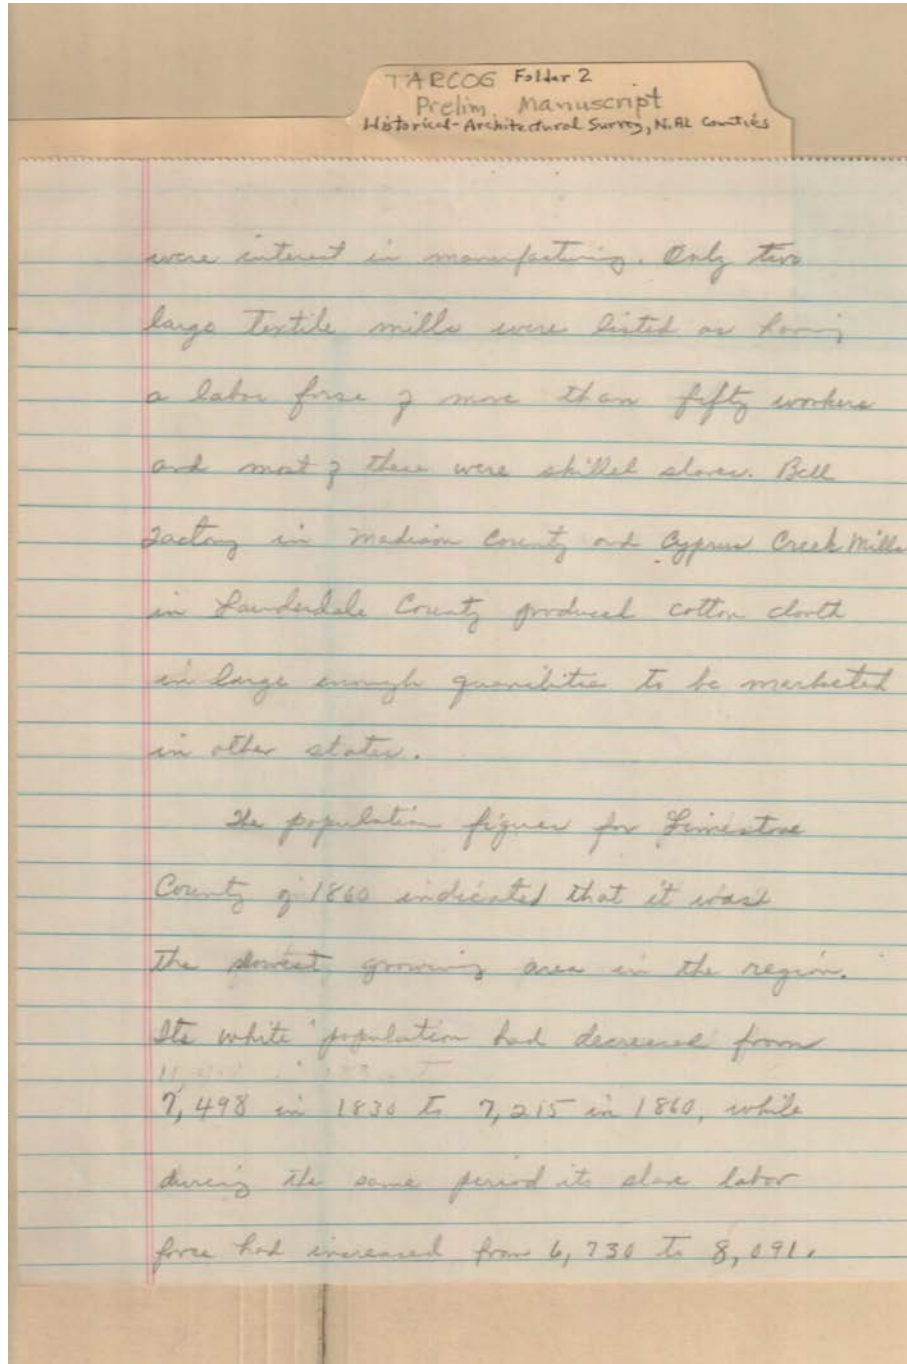 TARCOG Folder 2
Prelim. Manuscript
Historical-Architectural Survey, N. AL Counties
were interest in manufacturing. Only two
large Textile mills were listed as having
a labor force of more than fifty workers
and most of these were skilled slaves. Bell
Factory in Madison County and Cyprus Creek Mills
in Lauderdale County produced cotton cloth
in large enough quanities to be marketed
in other states.
The population figures for Limestone
County of 1860 indicated that it was
the slowest growing area in the region.
Its white population had decreased from
7,498 in 1830 to 7,215 in 1860, while
during the same period its slave labor
force had increased from 6,730 to 8,091.